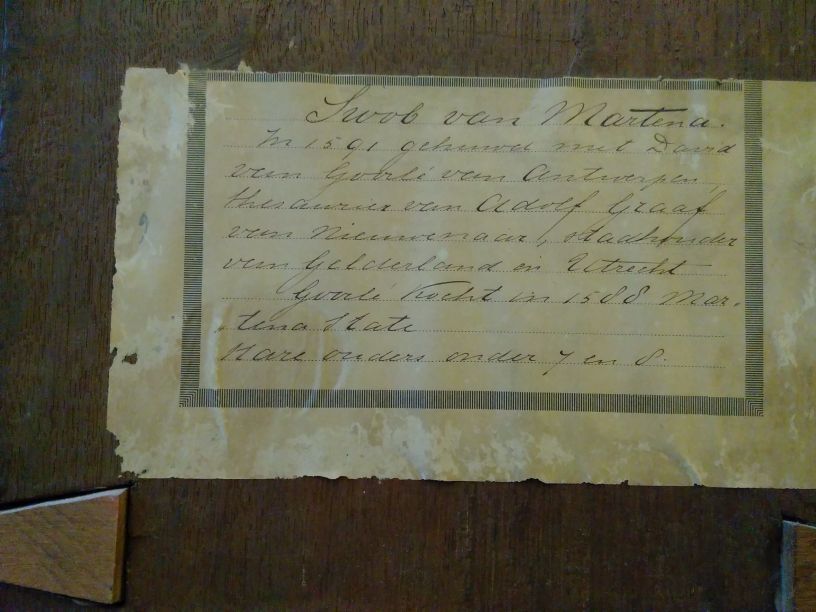 Swob van Martena.
In 1591 gehuwd met David
van Goorlé van Antwerpen,
thesaurier van Adolf Graaf
van Nieuwenaar, stadhouder
van Gelderland en Utrecht
Goorlé Kocht in 1588 Mar-
tena State
Hare ouders onder 7 en 8.